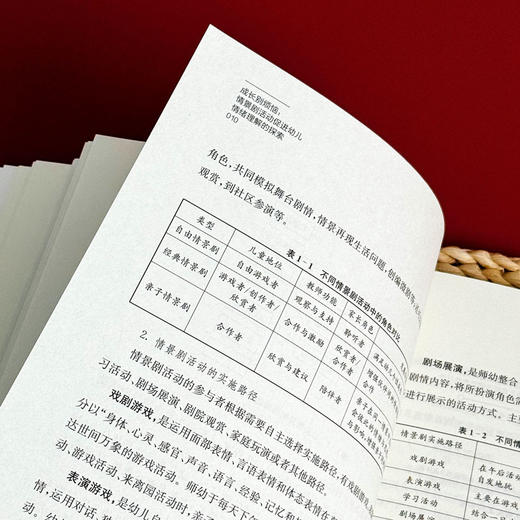 成长别烦恼:
情景剧活动促进幼儿
情绪理解的探索
010
角色,共同模拟舞台剧情,情景再现生活问题,创编微剧等
观赏,到社区参演等。
表1-1 不同情景剧活动中的角色对比
类型 儿童地位 教师功能 家长角色
自由情景剧 自由游戏者 观察与支持 聆听者
经典情景剧 游戏者/创作者/欣赏者 合作与激励 欣赏者/合作者
亲子情景剧 合作者 欣赏与建议 陪伴者
2. 情景剧活动的实施路径
情景剧活动的参与者根据需要自主选择实施路径,有戏剧游戏
习活动、剧场展演、剧院观赏、家庭玩演或者其他路径。
戏剧游戏,是运用面部表情、言语表情和体态表情在
分以“身体、心灵、感官、声音、语言、经验、记忆和
达世间万象的游戏活动。师幼于每天下午
动、游戏活动、来离园活动时,
表演游戏,是幼儿自
情,运用对话、独
动。幼儿
剧场展演,是师幼整合
剧情内容,将所扮演角色
进行展示的活动方式。主
表1-2 不同
情景剧实施路径
戏剧游戏 在午后活动
自发地犹
表演游戏 主要在
学习活动 结合一
剧场展演